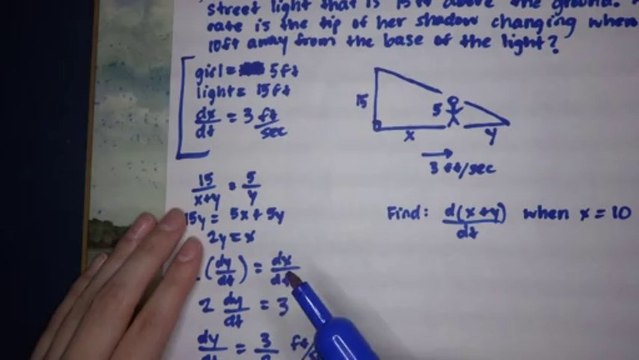 street light that is 15 ft above the ground.
rate is the tip of her shadow changing when
10ft away from the base of the light?
girl = 5 ft
light = 15 ft
dx/dt = 3 ft/sec
15
5
x
y
3 ft/sec
15/x+y = 5/y
15y = 5x + 5y
2y = x
Find: d(x+y)/dt when x = 10
(dy/dt) = dx/dt
2 dy/dt = 3
dy/dt = 3/2